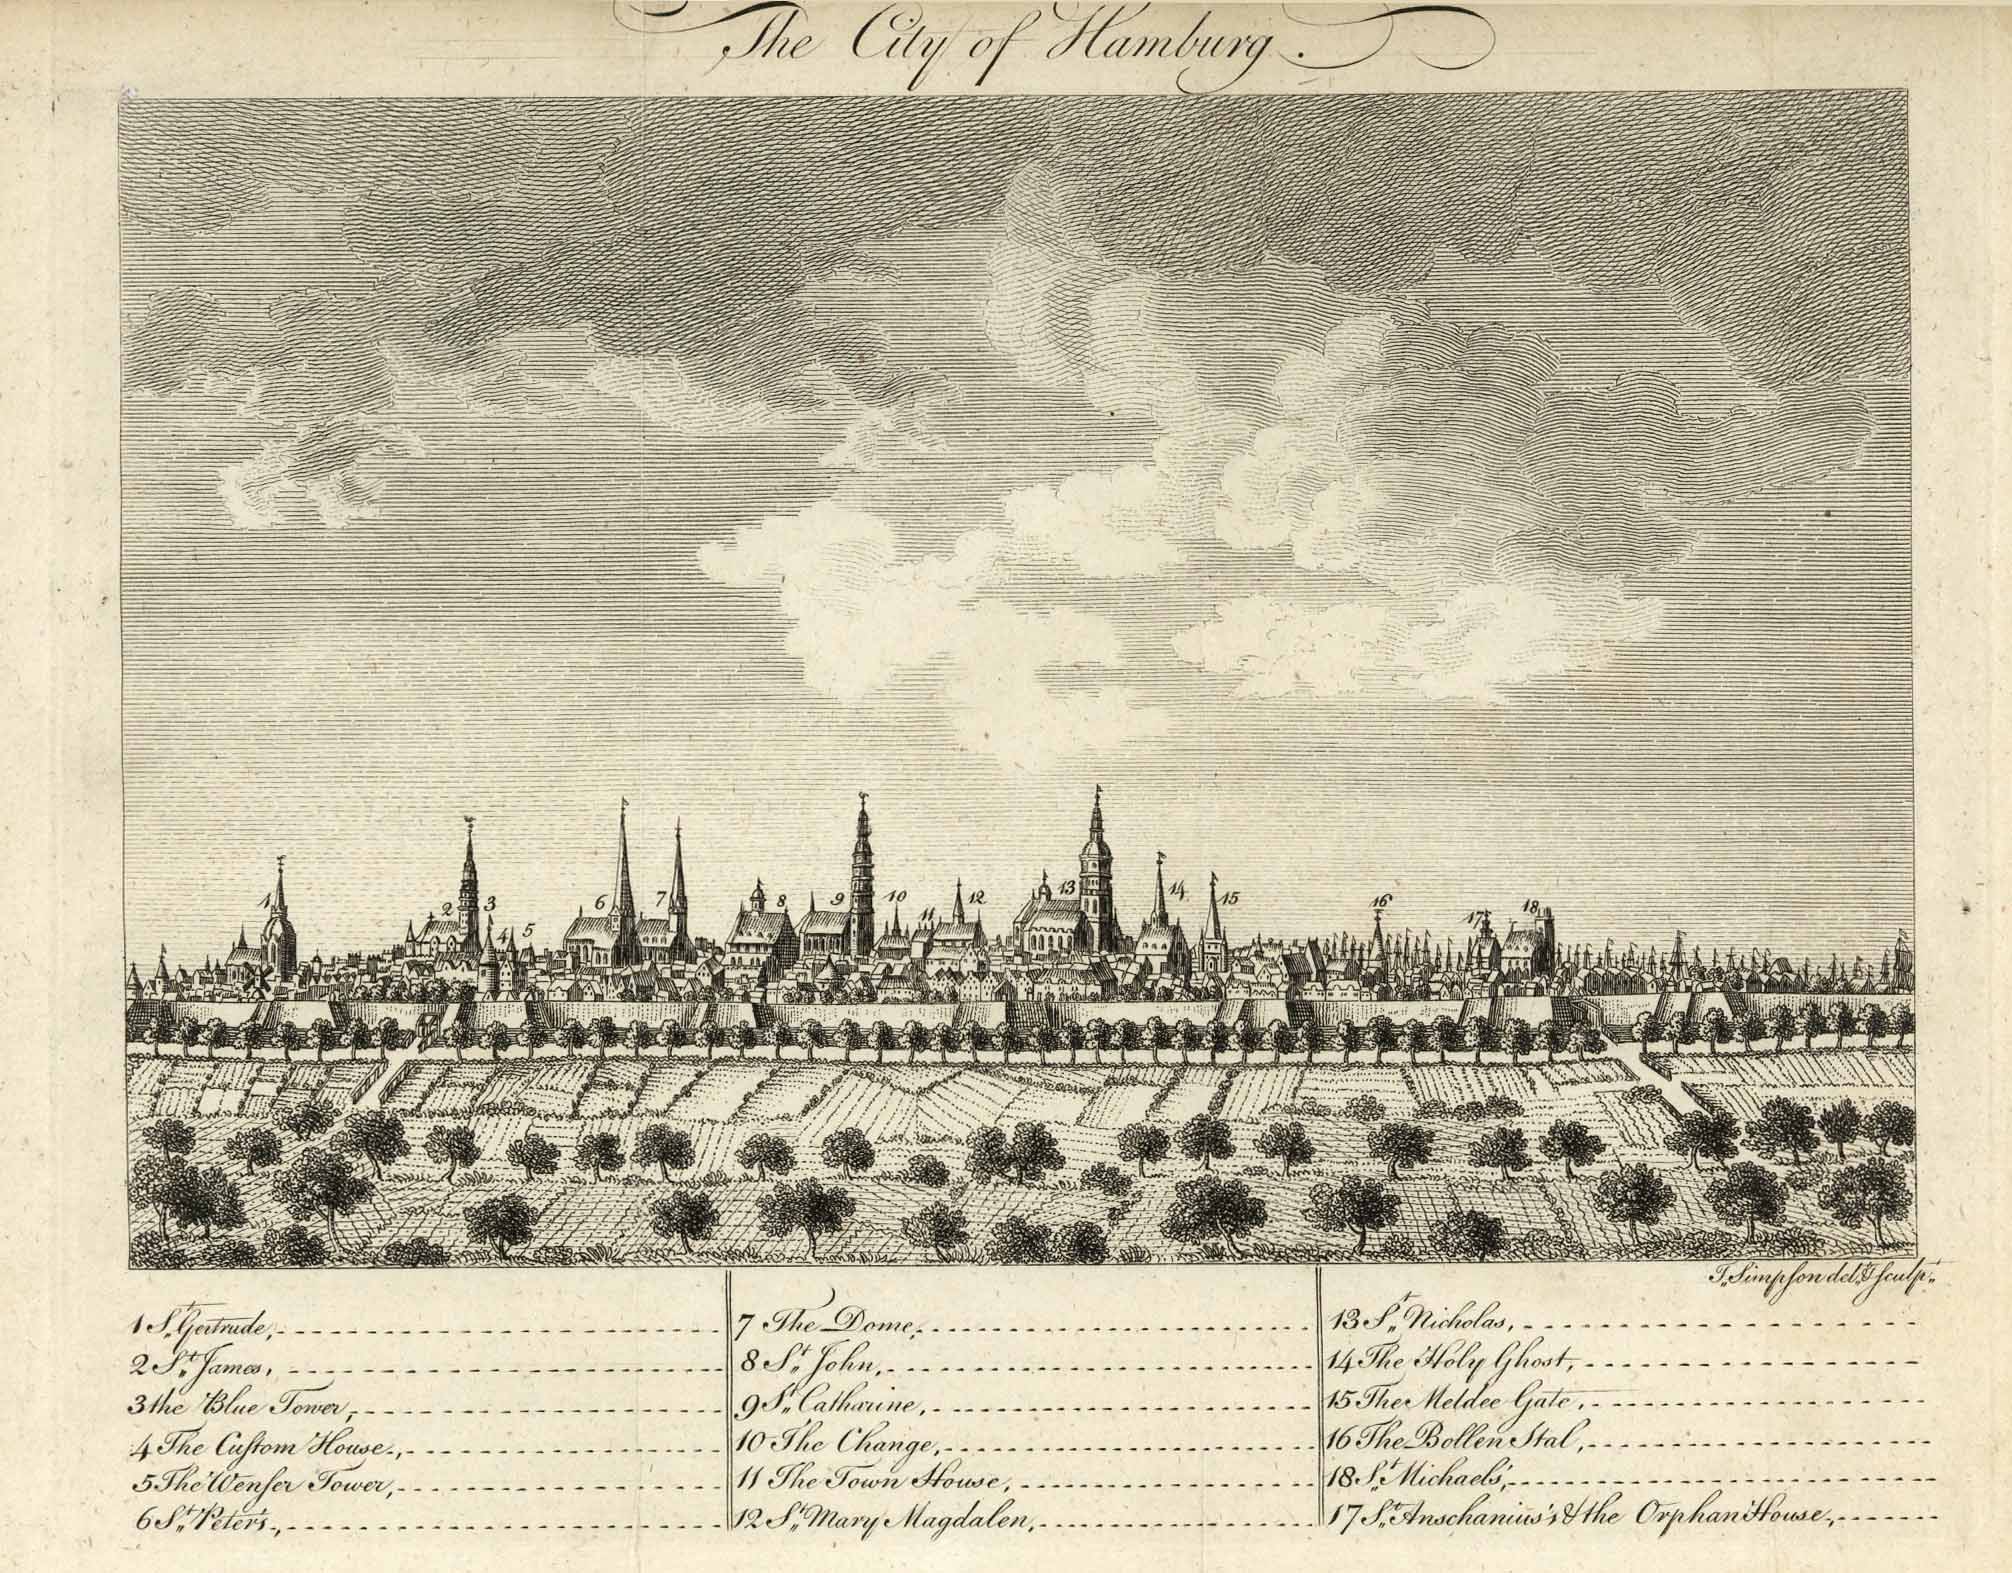 The City of Hamburg.
1
2
3
4
5
6
7
8
9
10
11
12
13
14
15
16
17
18
T. Simpson del. & sculp.t
1 St. Gertrude,
2 St. James,
3 the Blue Tower,
4 The Custom House,
5 The Wenser Tower,
6 St. Peter's,
7 The Dome,
8 St. John,
9 St. Catharine,
10 The Change,
11 The Town House,
12 St. Mary Magdalen,
13 St. Nicholas,
14 The Holy Ghost,
15 The Meldee Gate,
16 The Bollen Stal,
18 St. Michaels',
17 St. Anschanius's & the Orphan House,